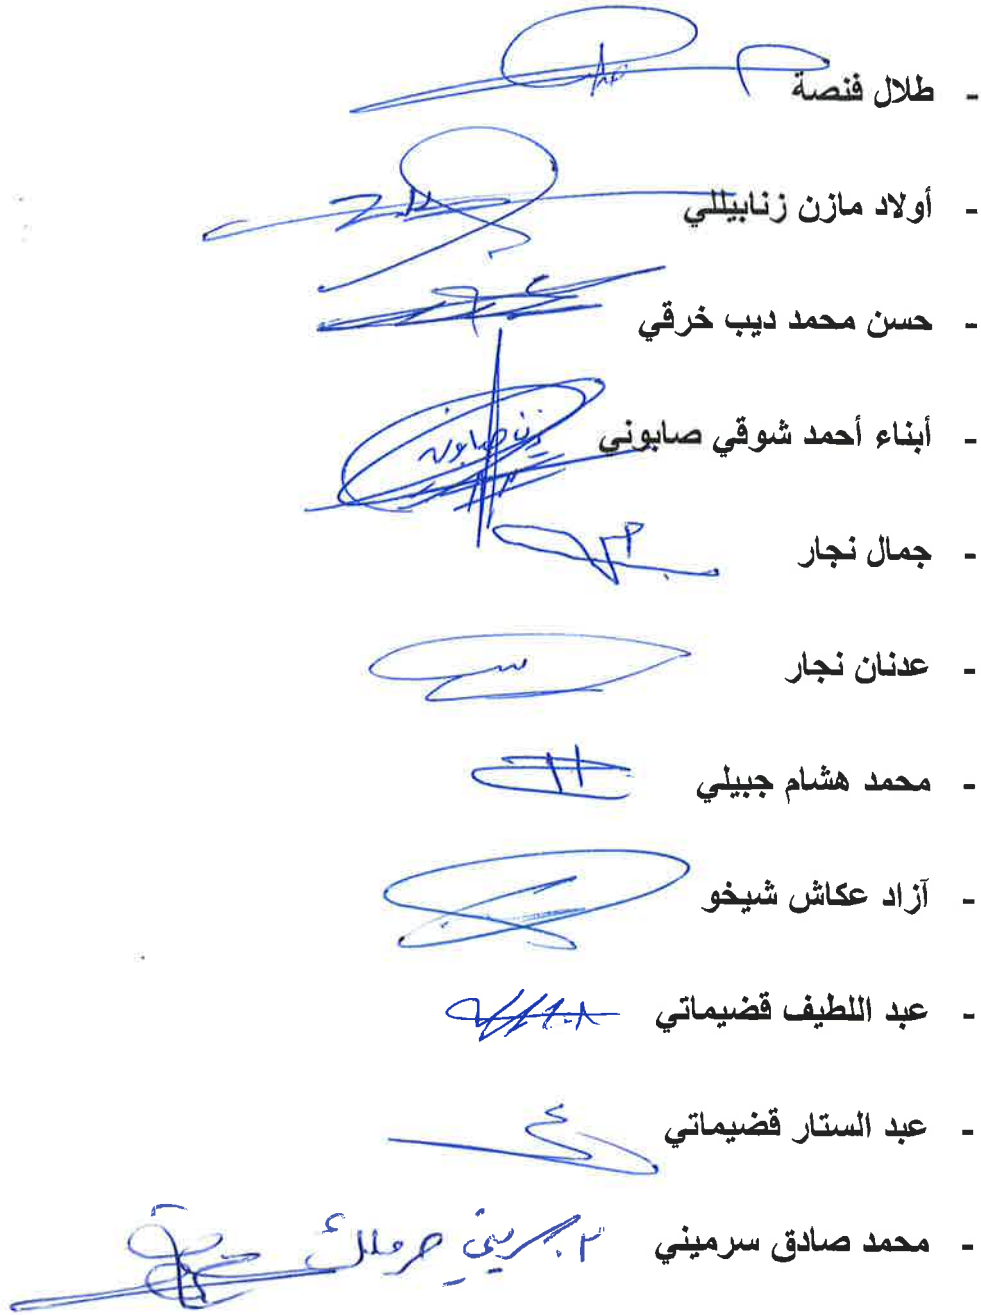 - طلال فنصة
- أولاد مازن زنابيللي
- حسن محمد ديب خرقي
- أبناء أحمد شوقي صابوني
زين صابوني
- جمال نجار
- عدنان نجار
- محمد هشام جبيلي
- آزاد عكاش شيخو
- عبد اللطيف قضيماتي
- عبد الستار قضيماتي
- محمد صادق سرميني